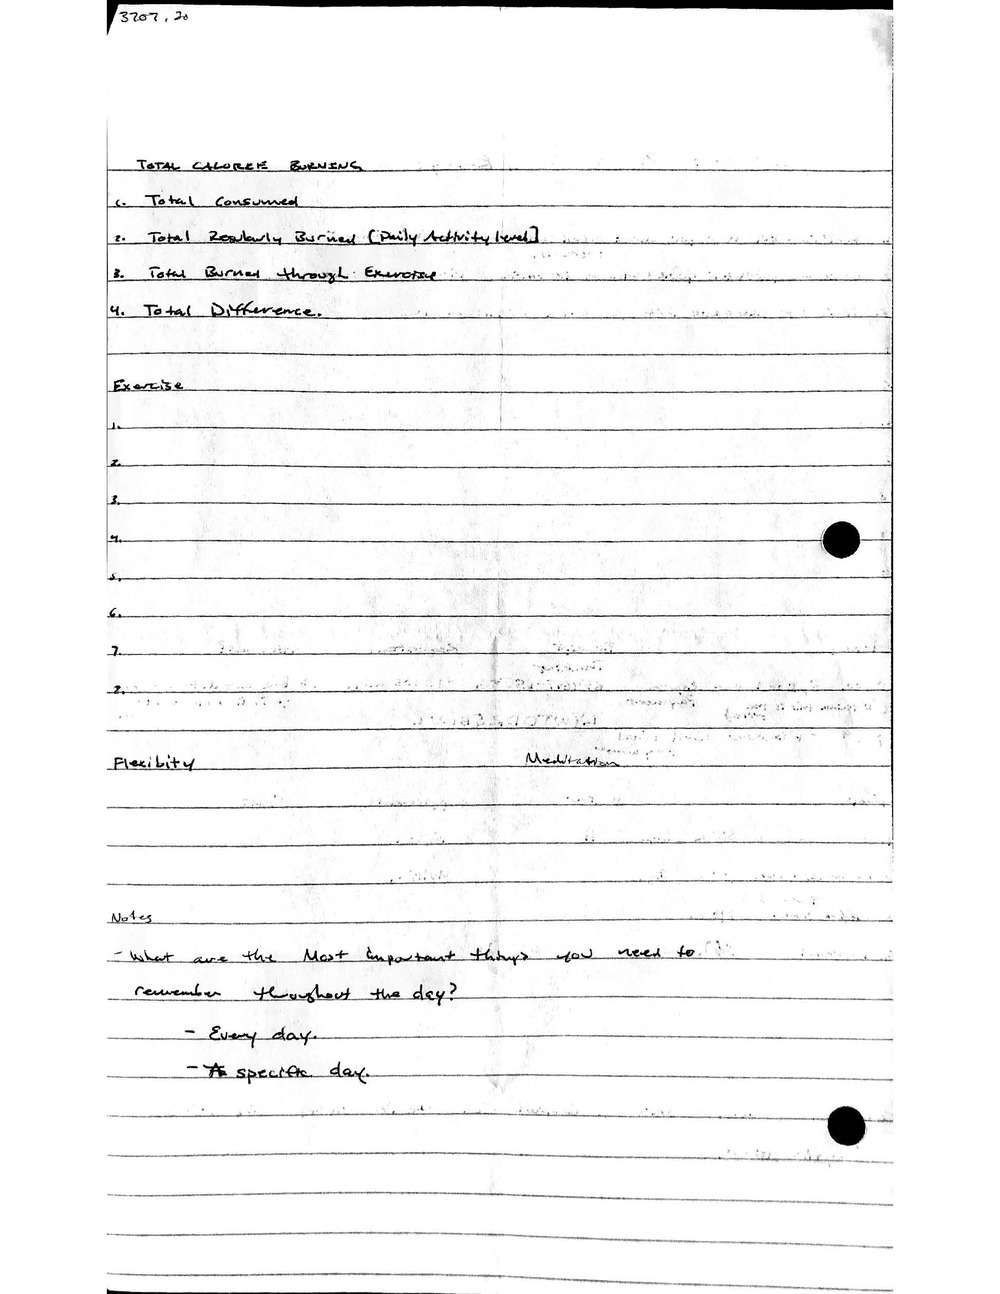 3207.20
TOTAL CALOREE BURNING
1. Total Consumed
2. Total Regularly Burned [Daily Activity level]
3. Total Burned through Exercise
4. Total Difference.
Exercise
1.
2.
3.
4.
5.
6.
7.
2.
Flexibity Meditation
Notes
- What are the Most important things you need to
remember throughout the day?
- Every day.
- A specific day.